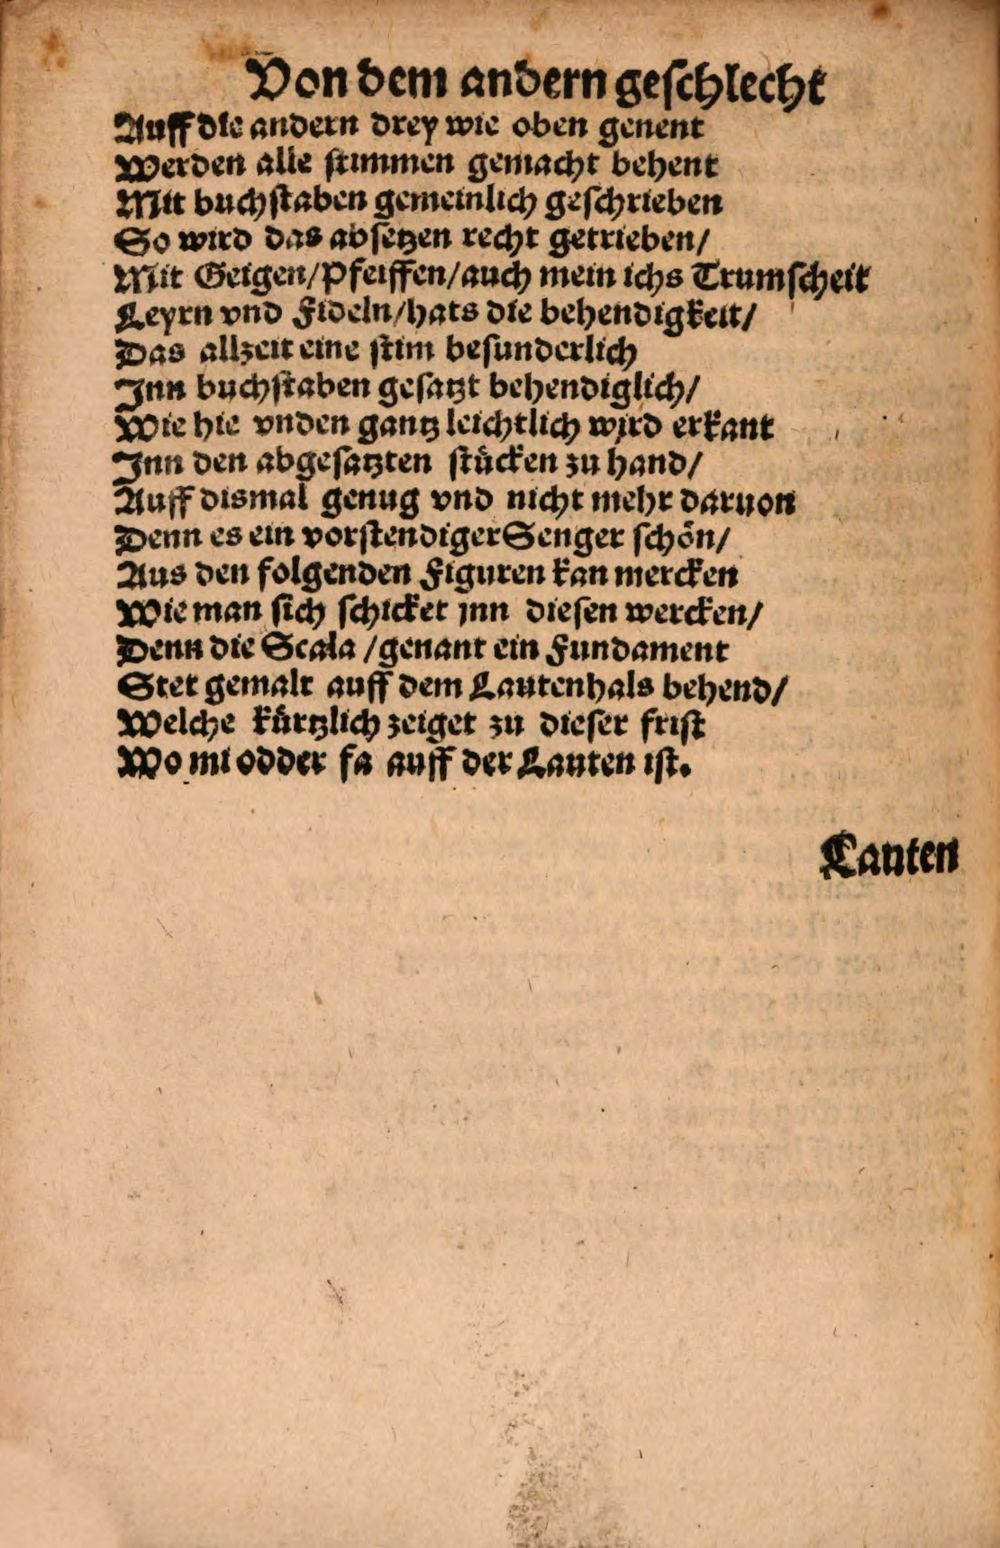 Von dem andern geschlecht
Auff die andern drey wie oben genent
Werden alle stimmen gemacht behent
Mit buchstaben gemeinlich geschrieben
So wird das absetzen recht getrieben/
Mit Geigen/Pfeiffen/auch mein ichs Trumscheit
Leyrn vnd Fideln/hats die behendigkeit/
Das allzeit eine stim besunderlich
Jnn buchstaben gesatzt behendiglich/
Wie hie vnden gantz leichtlich wird erkant
Jnn den abgesatzten stücken zu hand/
Auff dismal genug vnd nicht mehr daruon
Denn es ein vorstendiger Senger schön/
Aus den folgenden Figuren kan mercken
Wie man sich schicket jnn diesen wercken/
Denn die Scala /genant ein Fundament
Stet gemalt auff dem Lautenhals behend/
Welche kürtzlich zeiget zu dieser frist
Wo mi odder fa auff der Lauten ist.
Lauten